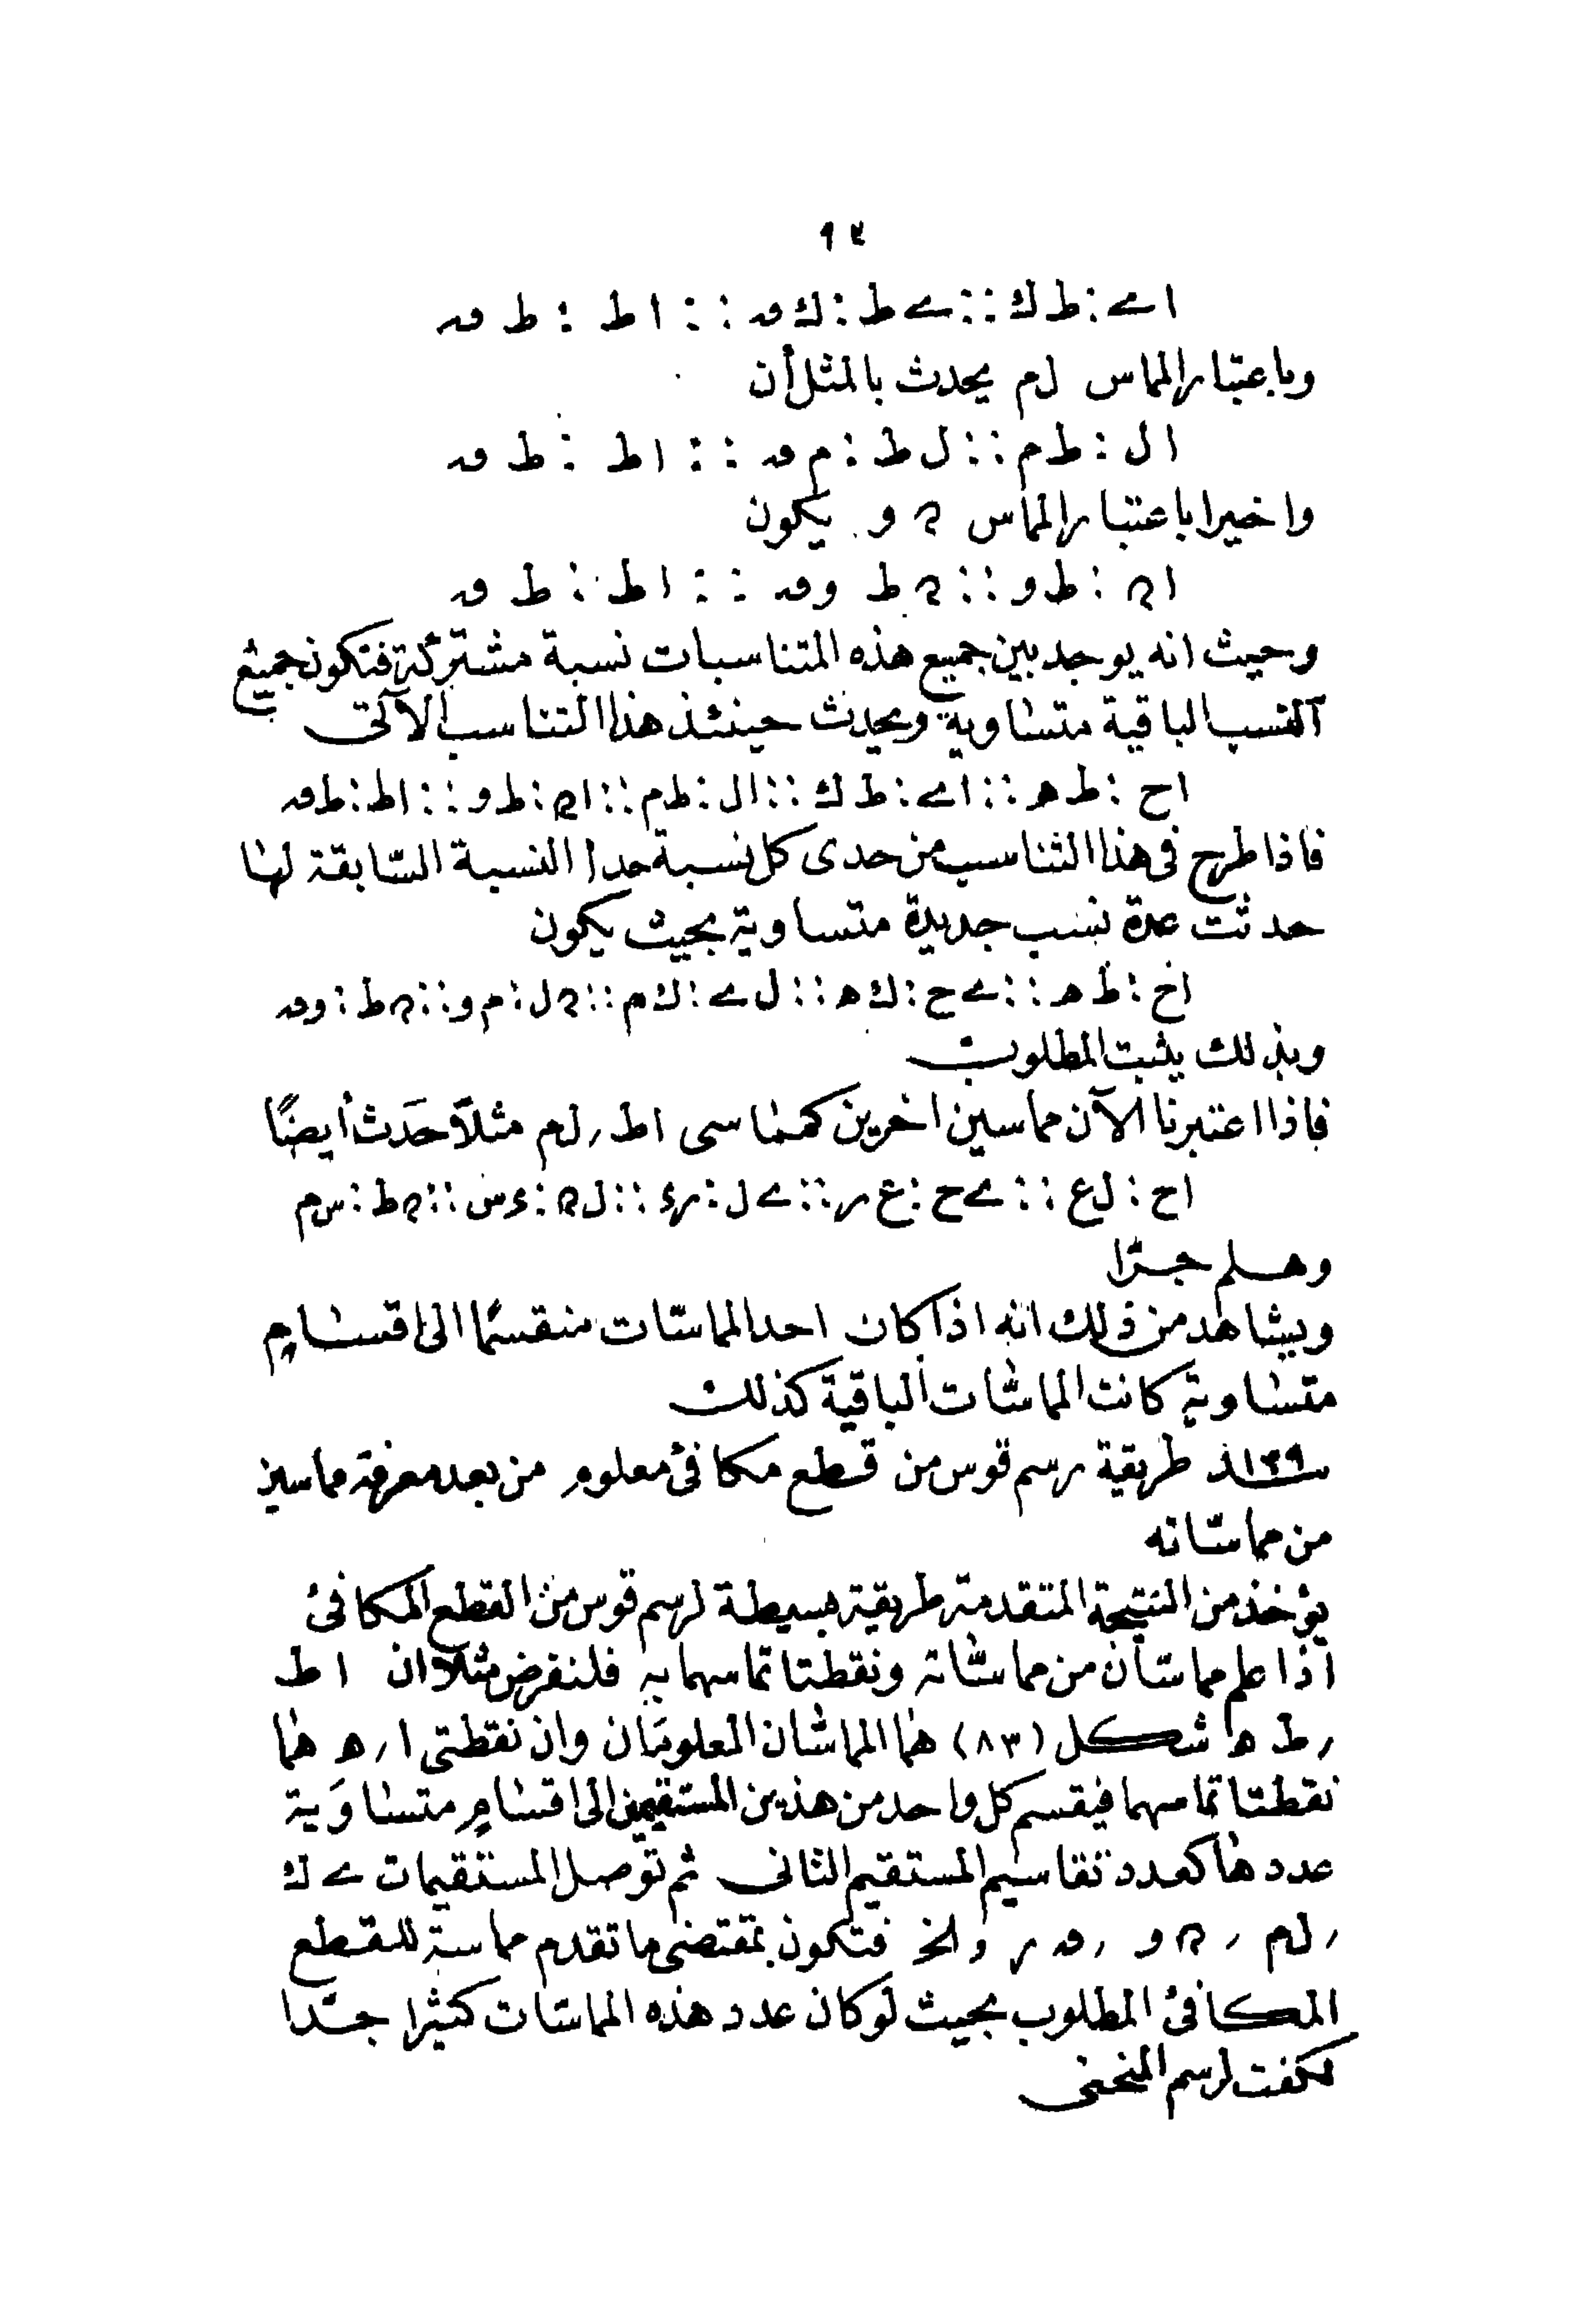 ٩٤
اى : ط ك :: ى ط : ك ق :: اط : ط ق
وباعتبار المماس ل م يحدث بالمثل أن
ال : ط م :: ل ط : م ق :: اط : ط ق
واخيرا باعتبار المماس ن و يكون
ان : ط و :: ن ط وق :: اط : ط ق
وحيث انه يوجد بين جميع هذه المتناسبات نسبة مشتركة فتكون جميع
النسب الباقية متساوية ويحدث حينئذ هذا التناسب الآتى
اح : ط ه :: اى : ط ك :: ال : ط م :: ان : ط و :: اط : ط ق
فاذا طرح فى هذا التناسب من حدى كل نسبة حدا النسبة السابقة لها
حدثت عدة نسب جديدة متساوية بحيث يكون
اح : ط ه :: ى ح : ك ه :: ل ى : ك م :: ن ل : م و :: ن ط : وق
وبذلك يثبت المطلوب
فاذا اعتبرنا الآن مماسين اخرين كمماسى اط , ل م مثلا حدث أيضًا
اح : ل ع :: ى ح : ع ر :: ى ل : رء :: ل ن : ء س :: ن ط : س م
وهلم جرّا
ويشاهد من ذلك انه اذا كان احد المماسّات منقسمًا الى اقسام
متساوية كانت المماسّات الباقية كذلك
١٣٩ طريقة رسم قوس من قطع مكافئ معلوم من بعد معرفة مماسين
من مماسّاته
يؤخذ من النتيجة المتقدمة طريقة بسيطة لرسم قوس من القطع المكافئ
اذا علم مماسّان من مماسّاته ونقطتا تماسهما به فلنفرض مثلا ان اط
, ط ه شكل (٨٣) هما المماسّان المعلومان وان نقطتى ا , ه هما
نقطتا تماسهما فيقسم كل واحد من هذين المستقيمين الى اقسامٍ متساوَية
عددها كعدد تقاسيم المستقيم الثانى ثم توصل المستقيمات ى ك
, ل م , ن و , ق ر والخ فتكون بمقتضى ما تقدم مماسة للقطع
المكافئ المطلوب بحيث لو كان عدد هذه المماسّات كثيرا جدّا
لكفت لرسم المنحنى